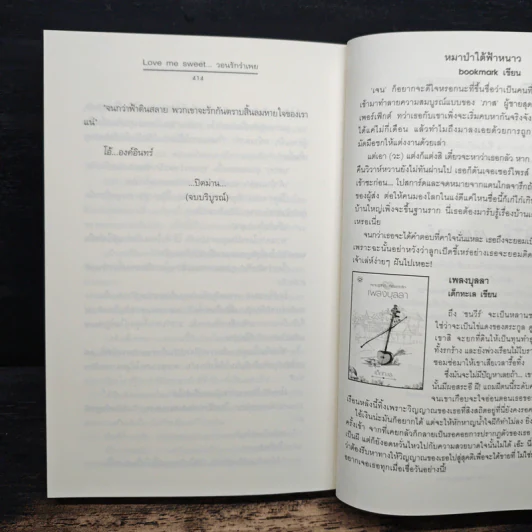 Love me sweet... วอนรักรำเพย
414
"จนกว่าฟ้าดินสลาย พวกเขาจะรักกันตราบสิ้นลมหายใจของเรา
แน่"
โอ้...องค์อินทร์
...ปิดม่าน...
(จบบริบูรณ์)
หมาป่าใต้ฟ้าหนาว
bookmark เขียน
'เจน' ก็อยากจะดีใจหรอกนะที่ขึ้นชื่อว่าเป็นคนที่
เข้ามาทำลายความสมบูรณ์แบบของ 'ภาส' ผู้ชายสุด
เพอร์เฟ็กต์ ทว่าเธอกับเขาเพิ่งจะเริ่มคบหากันจริงจัง
ได้แค่ไม่กี่เดือน แล้วทำไมถึงมาลงเอยด้วยการถูก
มัดมือชกให้แต่งงานด้วยเล่า
แต่เอา (วะ) แต่งก็แต่งสิ เดี๋ยวจะหาว่าเธอกลัว หาก
คืนวิวาห์หวานยังไม่ทันผ่านไป เธอก็ดันเจอเซอร์ไพรส์
เข้าซะก่อน...
ของผู้ส่ง
บ้านใหญ่เพิ่งจะขึ้นฐานราก นี่เธอต้องมารับรู้เรื่องบ้าน
เหรอเนี่ย
จนกว่าเธอจะได้คำตอบที่คาใจนั้นแหละ เธอถึงจะยอม
เพราะฉะนั้นอย่าหวังว่าลูกเป็ดขี้เหร่อย่างเธอจะยอม
เจ้าเล่ห์ง่ายๆ ฝันไปเหอะ!
เพลงบุลลา
เพลงบุลลา
เด็กทะเล เขียน
ถึง 'ธนวีร์' จะเป็นหลานชาย
ใช่ว่าจะเป็นไข่แดงของตระกูล
เขาสิ จะยกที่ดินให้เป็นทุนทำ
ทั้งรกร้าง และยังพ่วงเรือนไม้โบรา
ซอมซ่อมาให้เขาเสียเวลารื้อทิ้ง
ซึ่งมันจะไม่มีปัญหาเลยถ้า...
นั้นมีกลิ่นอาย
จนเขาเกือบจะใจอ่อนตอนเธอขอ
เรือนหลังนี้ทิ้งเพราะวิญญาณของเธอที่สิงสถิตอยู่ที่นี่ยังคงรอ
ไอ้เงินน่ะมันก็อยากได้ แต่จะให้หักหาญน้ำใจผีก็ทำไม่ลง
ครั้งเข้า จากที่เคยกลัวก็กลายเป็นรอคอยการปรากฏตัวของเธอ